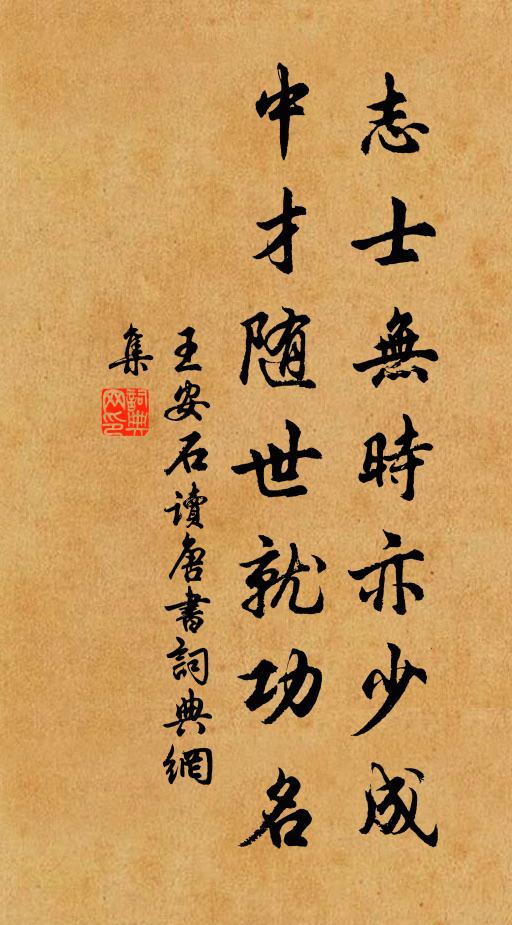 志士無時亦少成
中才随世就功名
王安石讀唐書詞典網
集
詞典網印